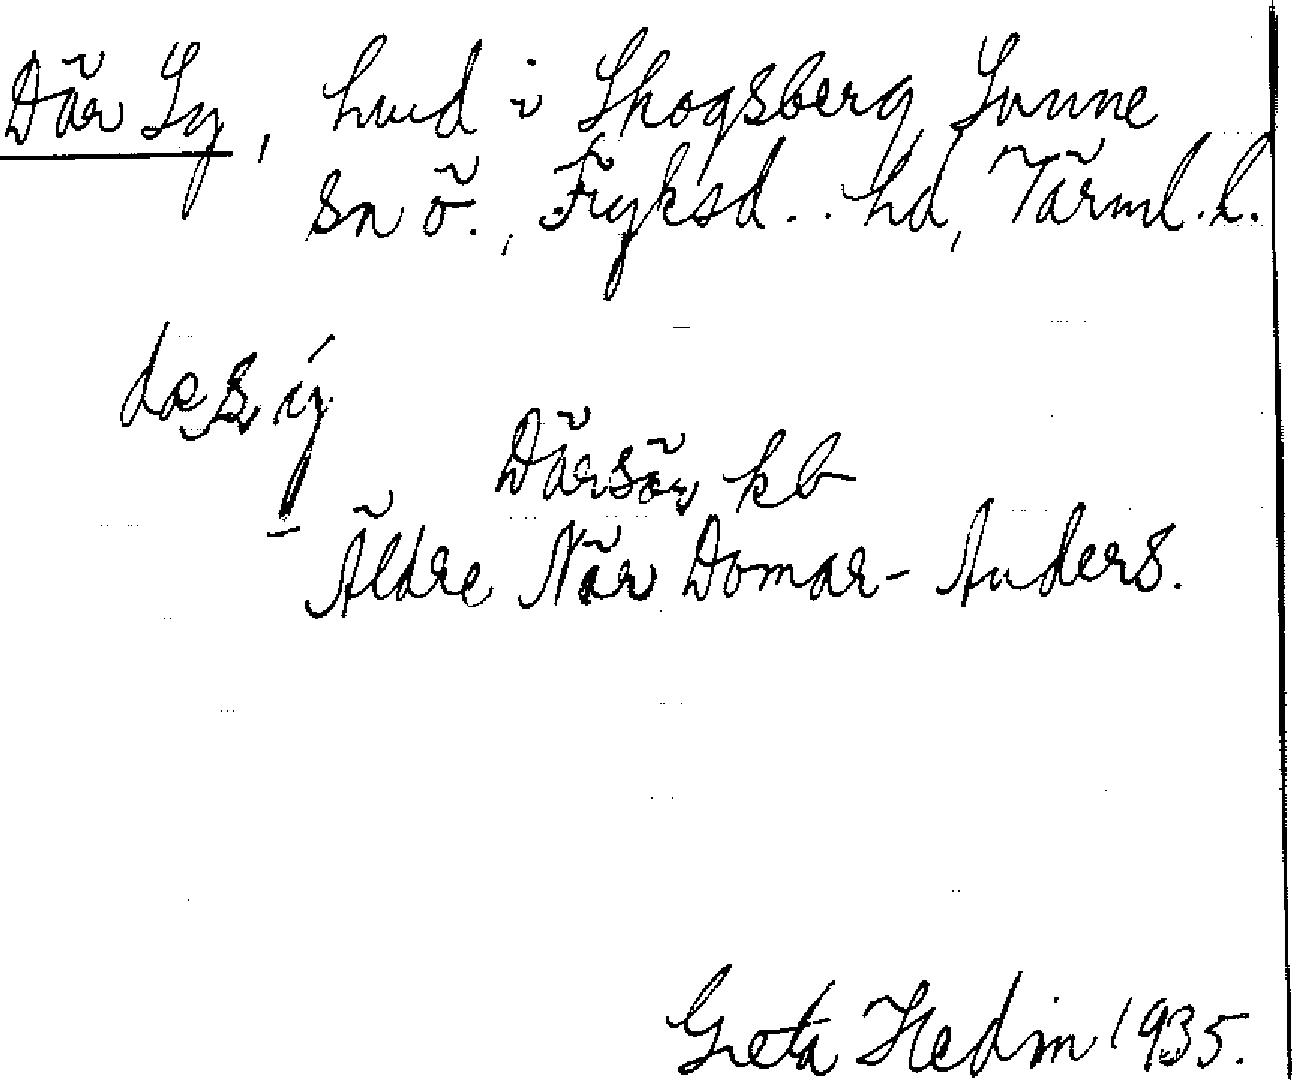 Där Sy, hmd i Skogsberg, Sunne
sn ö., Fryksd.. hd, Värml. l.
Där söv kb
Äldre När Domar-Anders.
Greta Hedin 1935.